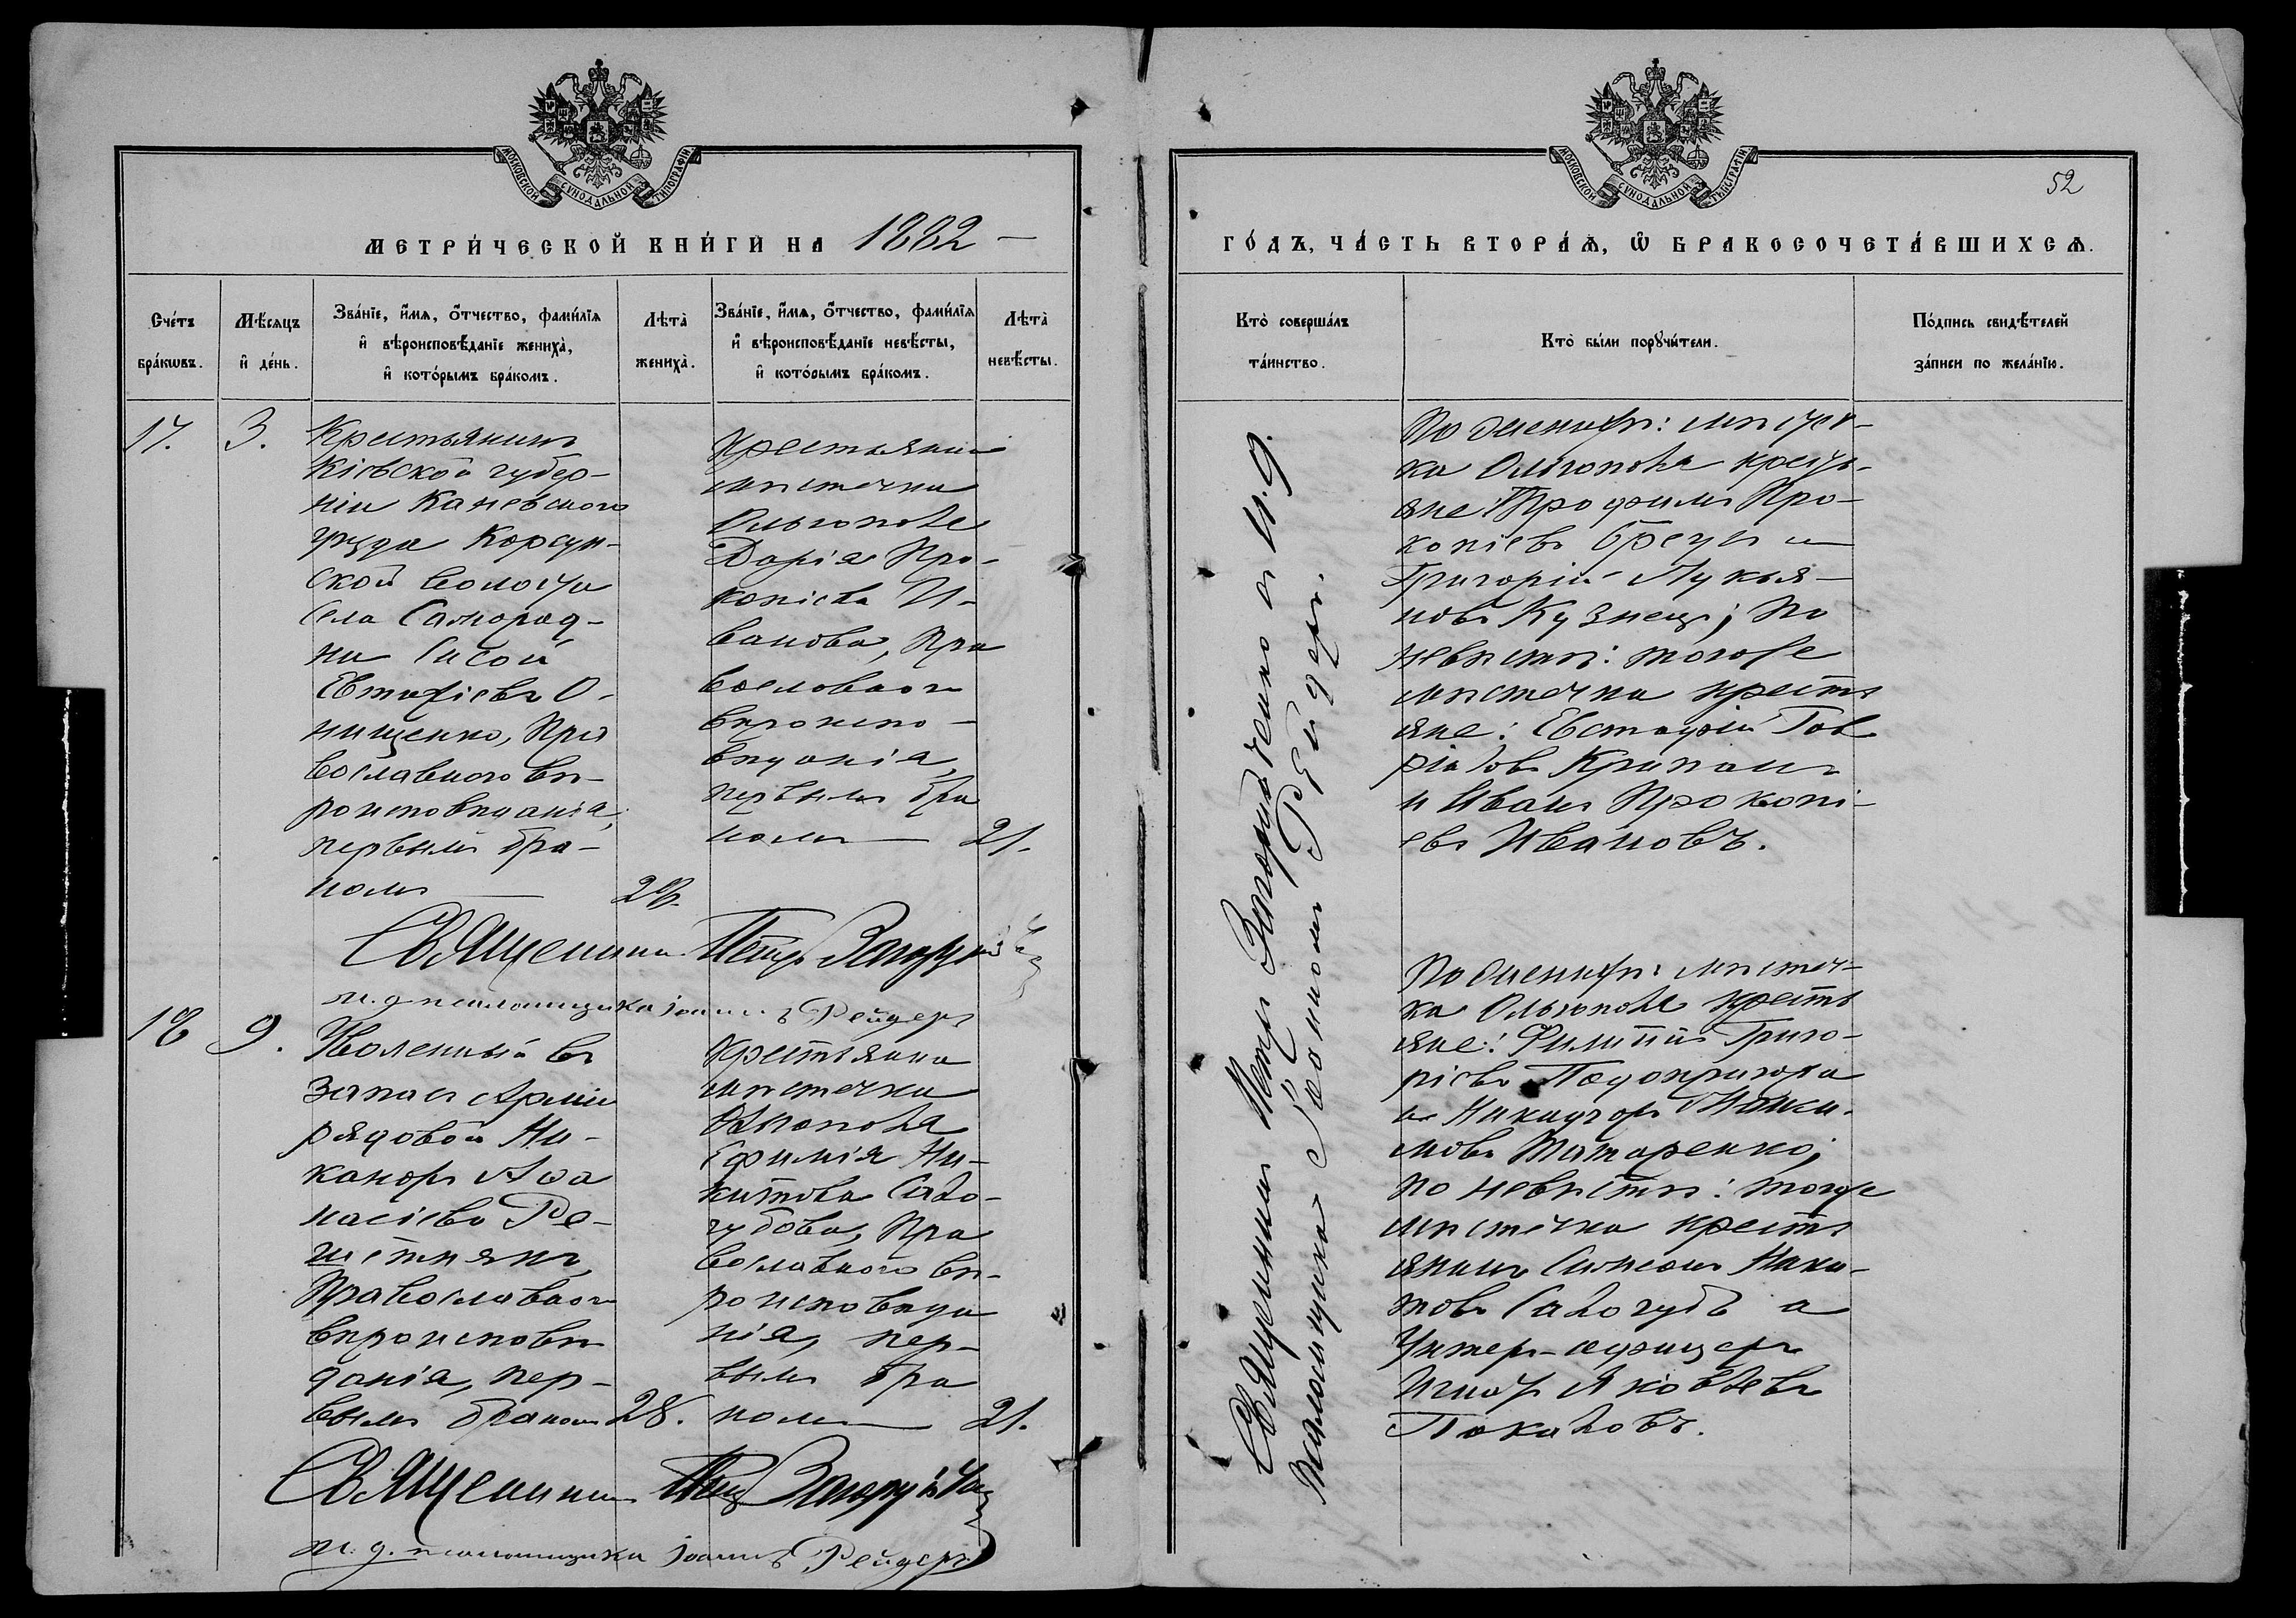 МОСКОВСКОЙ СУНОДАЛЬНОЙ ТИПОГРАФІИ
МЕТРИ́ЧЕСКОЙ КНИ́ГИ НА 1882 —
Сче́тъ бра́кѡвъ.
Мѣ́сяцъ и҆ де́нь.
Зва́нїе, и҆́мѧ, ѻ҆́тчество, фами́лїѧ и҆ вѣроисповѣ́данїе жениха̀, и҆ кото́рымъ бра́комъ.
Лѣта̀ жениха̀.
Зва́нїе, и҆́мѧ, ѻ҆́тчество, фами́лїѧ и҆ вѣроисповѣ́данїе невѣ́сты, и҆ кото́рымъ бра́комъ.
Лѣта̀ невѣ́сты.
17.
3.
Крестьянинъ
Кіевской губер-
ніи Каневскаго
уѣзда Корсун-
ской волости
села Саморад-
ни Сисой
Евтихіевъ О-
нищенко, Пра
вославнаго вѣ-
роисповѣданія,
первымъ бра-
комъ —
Крестьянка
мѣстечка
Ольгополя
Дарія Про-
копіева И-
ванова, Пра
вославнаго
вѣроиспо-
вѣданія,
первымъ бра
комъ — 21.
Священникъ Петръ
и. д. псаломщика Іоаннъ Рейдеръ
18
9.
Уволенный въ
запасъ Арміи
рядовой Ни-
каноръ Аѳа
насіевъ Ре-
шетнякъ,
Православнаго
вѣроисповѣ
данія, пер-
вымъ бракомъ 28.
Крестьянка
мѣстечка
Ольгополя
Ефимія Ни-
китова Сало-
губова, Пра
вославнаго вѣ-
роисповѣда
нія, пер-
вымъ бра
комъ — 21.
Священникъ Петръ
и. д. псаломщика Іоаннъ Рейдеръ
МОСКОВСКОЙ СУНОДАЛЬНОЙ ТИПОГРАФІИ
52
ГО́ДЪ, ЧА́СТЬ ВТОРА́Ѧ, Ѡ҆ БРАКОСОЧЕТА́ВШИХСѦ.
Кто̀ соверша́лъ та́инство.
Кто̀ бы́ли порꙋчи́тели.
По́дпись свидѣ́телей за́писи по жела́нїю.
Священникъ Петръ и И. д.
Псаломщика Іоаннъ Рейдеръ.
По женихѣ: мѣстеч-
ка Ольгополя кресть-
яне Трофимъ Про-
копіевъ и
Григорій Лукья-
новъ Кузнецъ; По
невѣстѣ: тогоже
мѣстечка кресть
яне: Евстафій Гав
ріиловъ
и Иванъ Прокопі-
евъ Ивановъ.
По женихѣ: мѣстеч-
ка Ольгополя кресть
яне: Филиппъ Григо-
ріевъ Подопригора
и Никифоръ
Татаренко;
по невѣстѣ: тогоже
мѣстечка кресть
янинъ Симеонъ Ники-
товъ Салогубъ и
Унтеръ-офицеръ
Игнатъ Яковлевъ